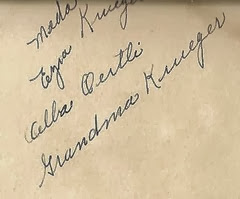 Mada
Ezra Krueger
Alba Oertli
Grandma Krueger